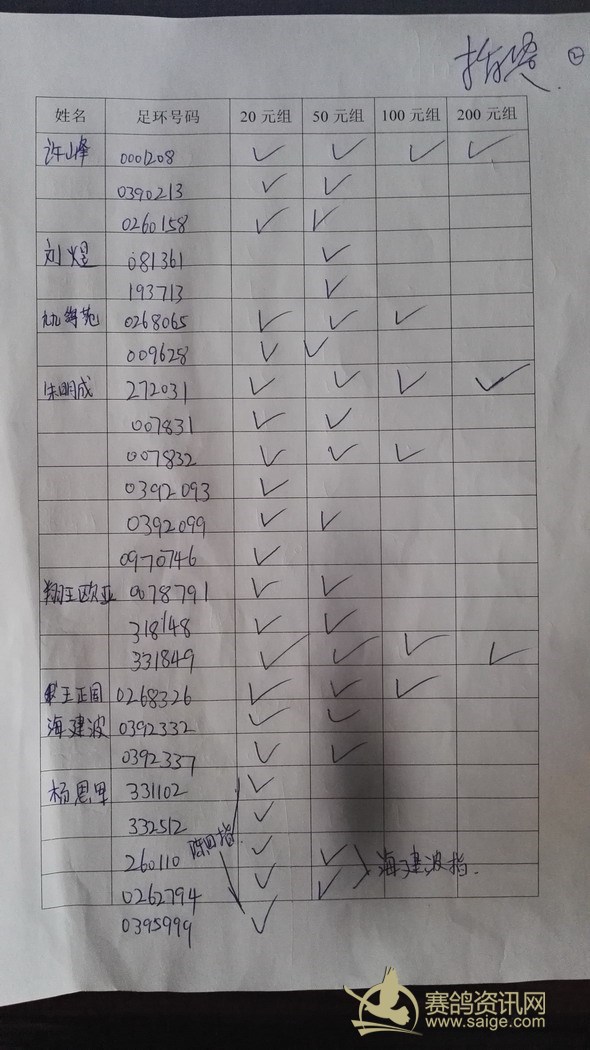 指鸽 ②
姓名 足环号码 20 元组 50 元组 100 元组 200 元组
许山峰 0001208 ✓ ✓ ✓ ✓
0390213 ✓ ✓
0260158 ✓ ✓
刘煜 081361 ✓
193713 ✓
0268065 ✓ ✓ ✓
009628 ✓ ✓
朱明成 272031 ✓ ✓ ✓ ✓
007831 ✓ ✓
007832 ✓ ✓ ✓
0392093 ✓
0392099 ✓ ✓
0970746 ✓
翔王欧亚 0078791 ✓ ✓
318148 ✓ ✓
331849 ✓ ✓ ✓ ✓
王正国 0268326 ✓ ✓ ✓
海建波 0392332 ✓ ✓
0392337 ✓ ✓
杨恩里 331102 ✓
332512 ✓
260110 ✓ ✓ 海建波指.
0262794 ✓ ✓
0395999 ✓
赛鸽资讯网
www.saige.com